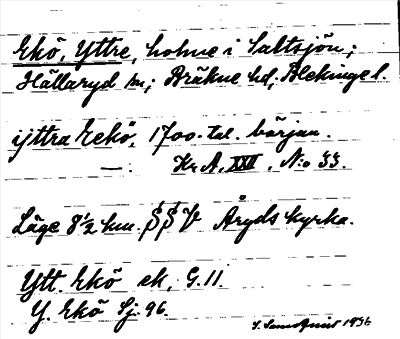 Ekö, Yttre, holme i Saltsjön;
Hällaryd sn; Bräkne hd; Blekinge l.
ijttra Eekö, 1700-tal. början.
— : Kr. A. XXII, No 33.
Läge 8½ km. SSV Åryds kyrka.
Ytt. Ekö ek, G.11.
Y. Ekö Sj. 96.
1936